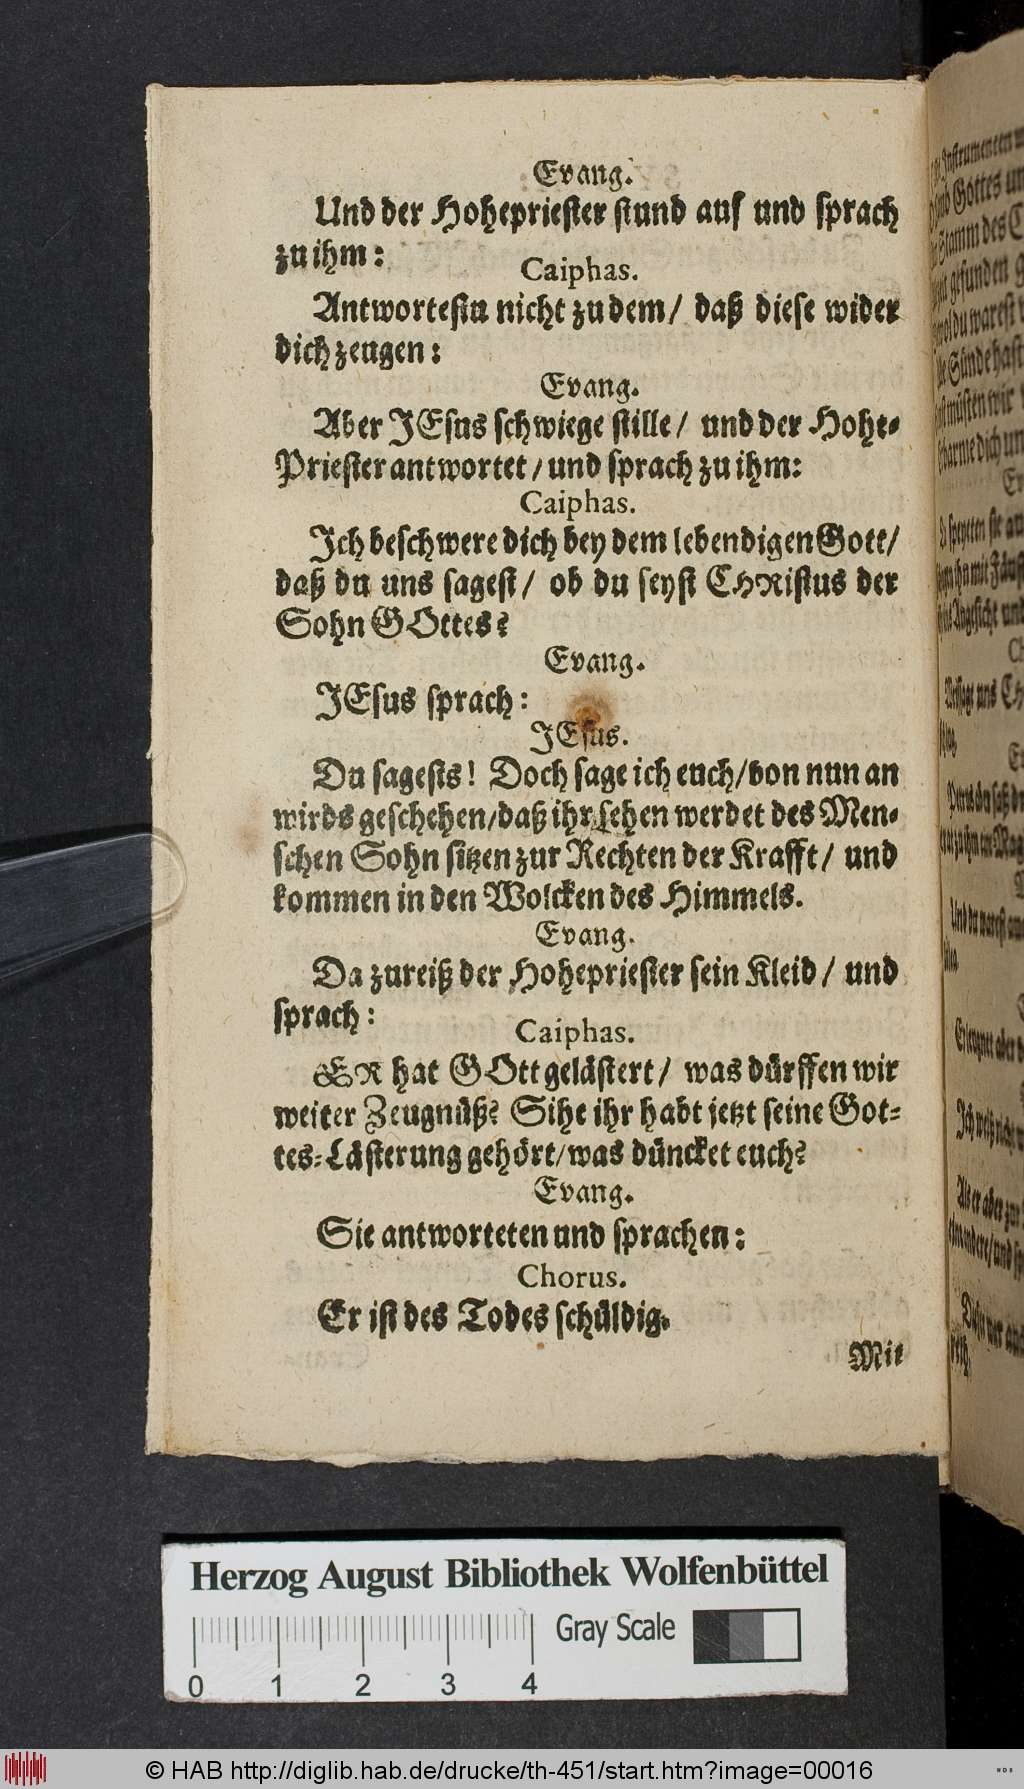 Evang.
Und der Hohepriester stund auf und sprach
zu ihm:
Caiphas.
Antwortestu nicht zu dem / daß diese wider
dich zeugen:
Evang.
Aber JEsus schwiege stille / und der Hohe-
Priester antwortet / und sprach zu ihm:
Caiphas.
Ich beschwere dich bey dem lebendigen Gott /
daß du uns sagest / ob du seyst CHRistus der
Sohn GOttes?
Evang.
JEsus sprach:
JEsus.
Du sagests! Doch sage ich euch / von nun an
wirds geschehen / daß ihr sehen werdet des Men-
schen Sohn sitzen zur Rechten der Krafft / und
kommen in den Wolcken des Himmels.
Evang.
Da zureiß der Hohepriester sein Kleid / und
sprach:
Caiphas.
ER hat GOtt gelästert / was dürffen wir
weiter Zeugnüß? Sihe ihr habt jetzt seine Got-
tes-Lästerung gehört / was düncket euch?
Evang.
Sie antworteten und sprachen:
Chorus.
Er ist des Todes schüldig.
Mit
Instrumenten
Gottes
Stamm des
gefunden
du warest
Sünde hast
müsten wir
dich
speyeten sie
Angesicht und
uns
Und du warest
Er leugnet aber
Ich weiß nicht
Als er aber zur
andere / und
Herzog August Bibliothek Wolfenbüttel
Gray Scale
0 1 2 3 4
© HAB http://diglib.hab.de/drucke/th-451/start.htm?image=00016